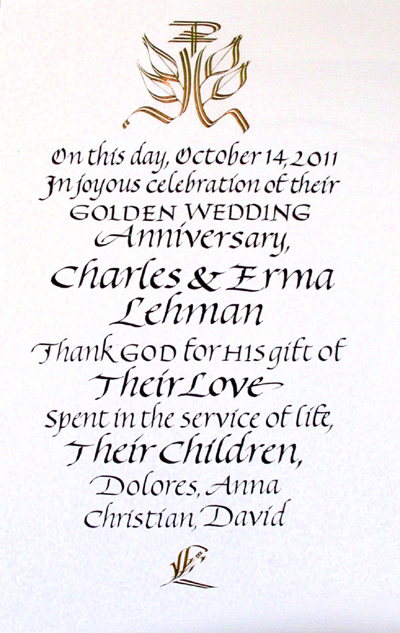 On this day, October 14, 2011
In joyous celebration of their
GOLDEN WEDDING
Anniversary,
Charles & Erma
Lehman
Thank GOD for HIS gift of
Their Love
Spent in the service of life,
Their Children,
Dolores, Anna
Christian, David